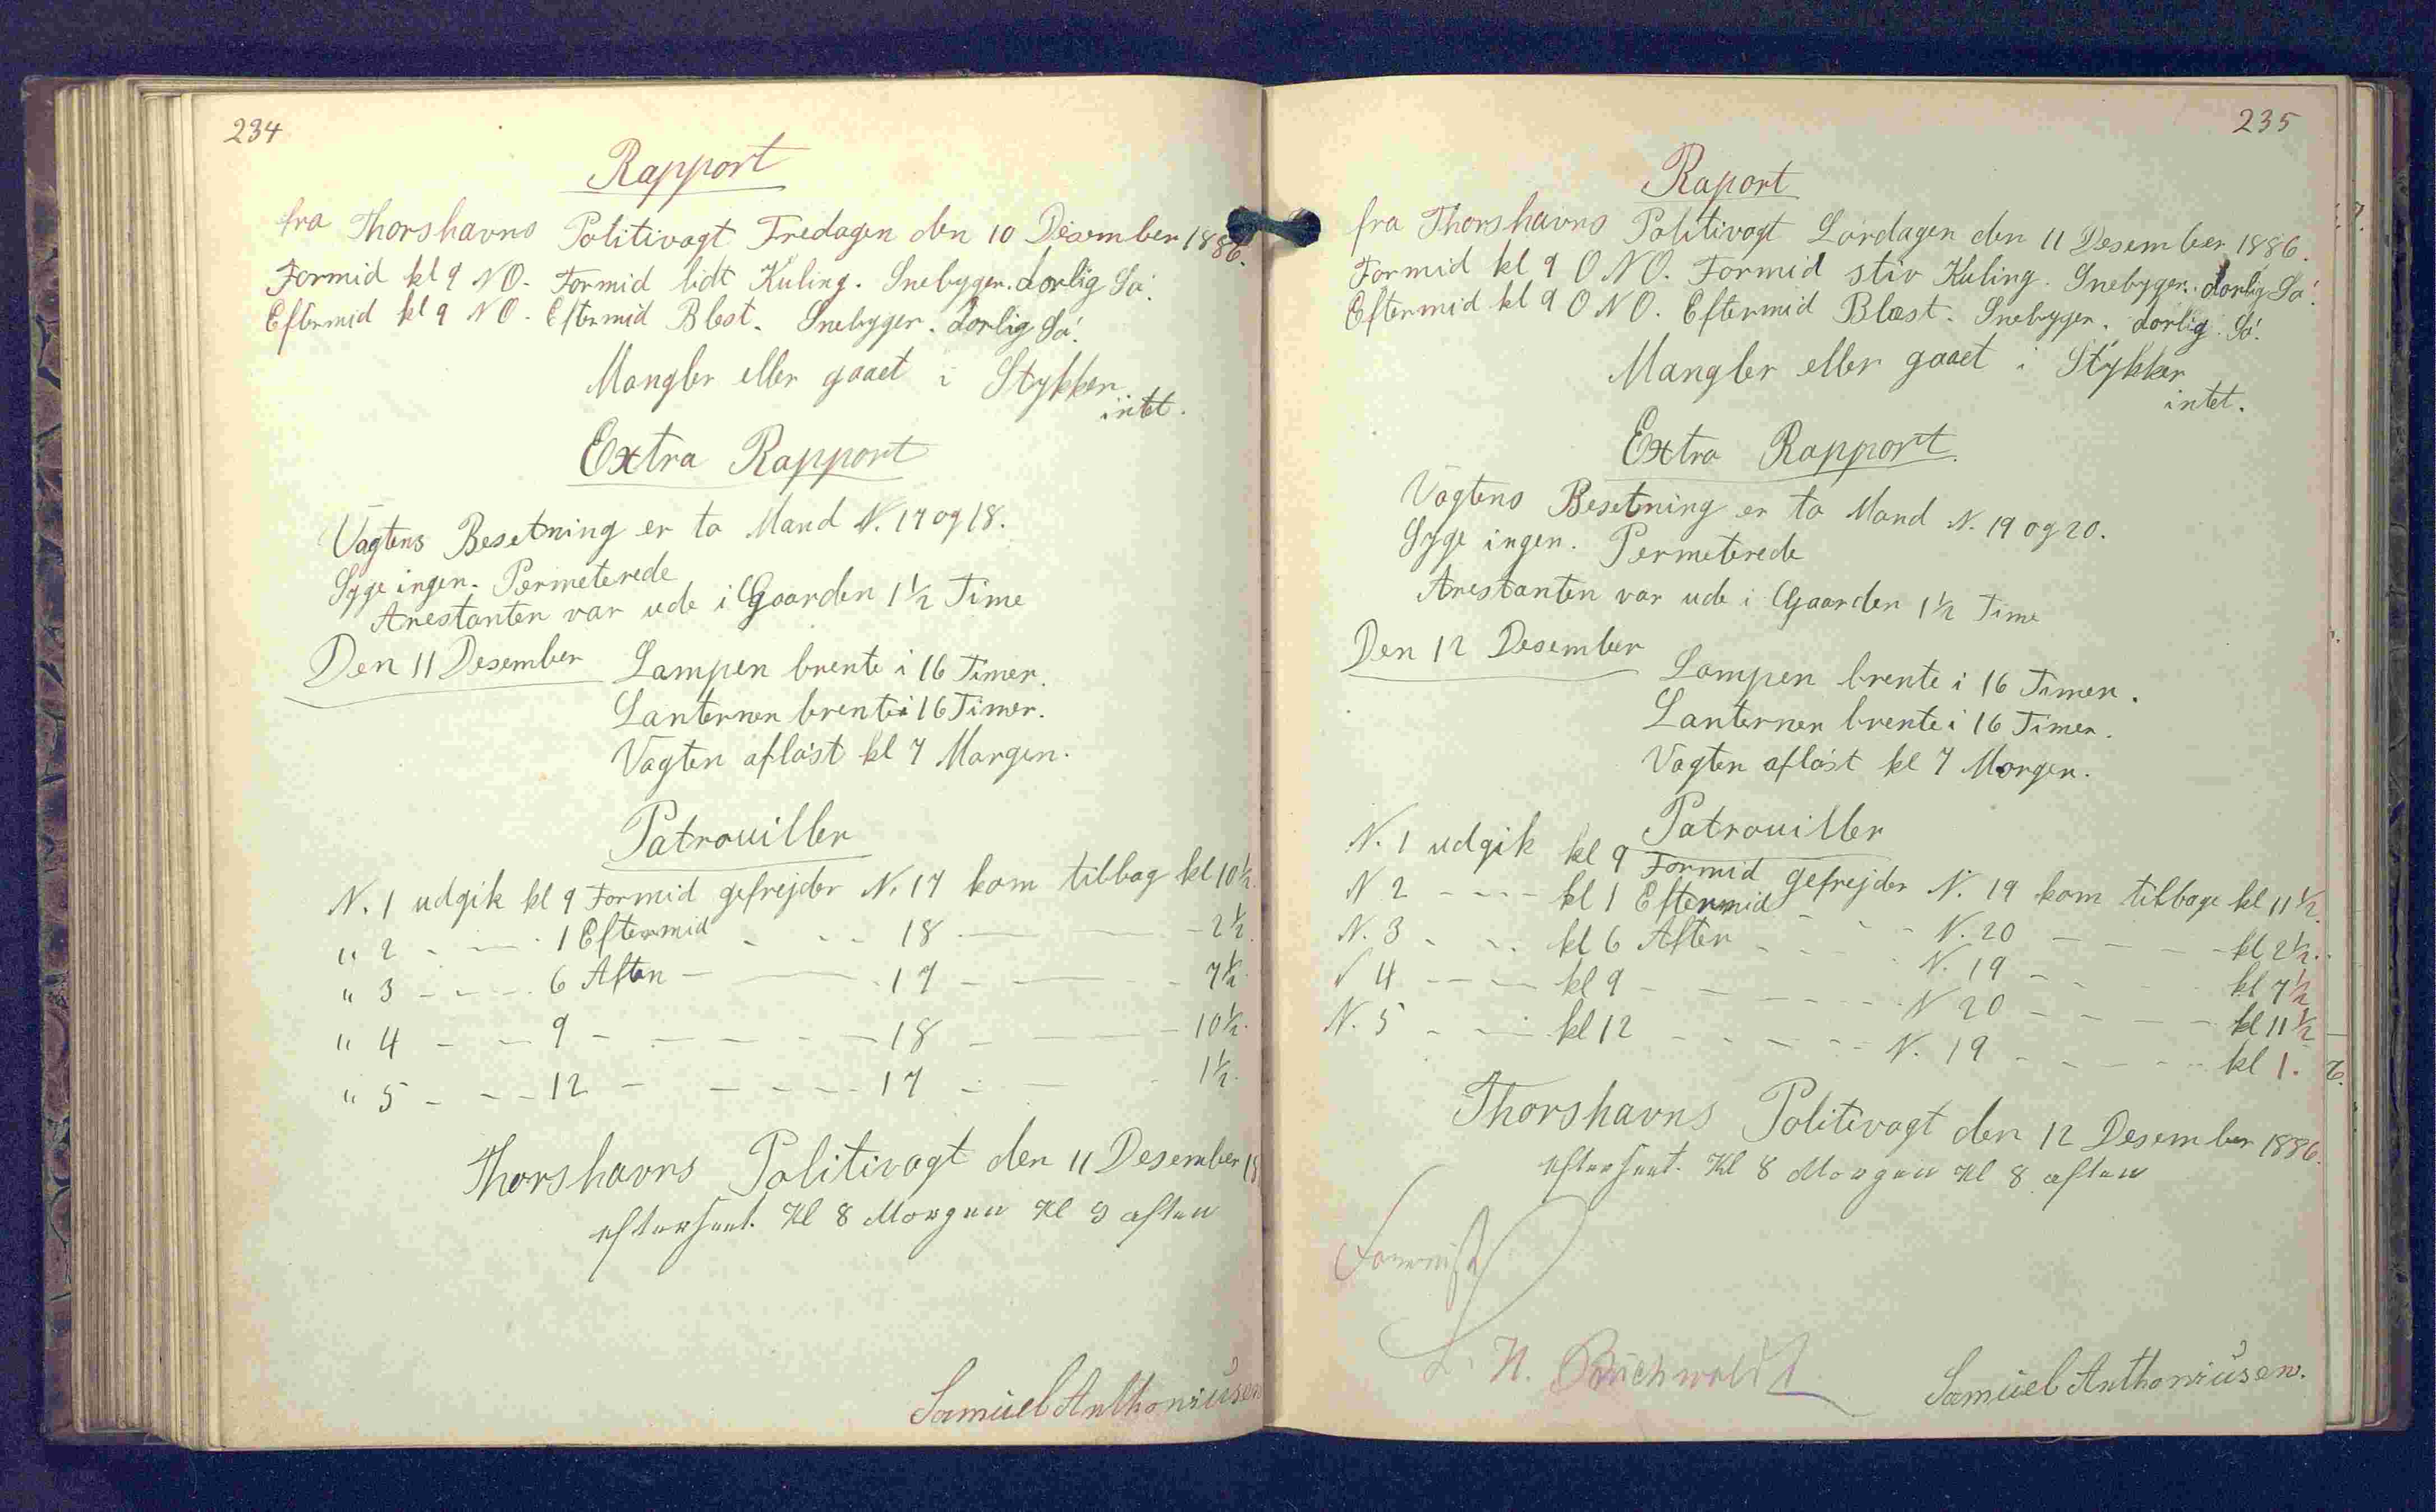 234
Rapport
fra Thorshavns Politivagt Fredagen den 10 Desember 1886.
Formid kl 9 NO. Formid lidt Kuling. Snebyger. dorlig Sö.
Eftermid kl 9 NO. Eftermid Blest. Snebyger. dorlig Sö.
Mangler eller gaaet i Stykker
intet.
Extra Rapport
Vagtens Besetning er to Mand N. 17 og 18.
Syge ingen. Permeterede
Arestanten var ude i Gaarden 1½ Time
Den 11 Desember Lampen brente i 16 Timer.
Lanternen brente i 16 Timer.
Vagten aflöst kl 7 Morgen.
Patrouiller
N. 1 udgik kl 9 Formid gefrejder N. 17 kom tilbag kl 10½
" 2 - - - 1 Eftermid - - - 18 - - - 2½
" 3 - - - 6 Aften - - - 17 - - - 7½
" 4 - - - 9 - - - 18 - - - 10½
" 5 - - - 12 - - - 17 - - - 1½
Thorshavns Politivagt den 11 Desember 18
efterseet. Kl 8 Morgen Kl 9 aften
Samüel Anthoniüsen
235
Raport
fra Thorshavns Politivagt Lördagen den 11 Desember 1886.
Formid kl 9 ONO. Formid stiv Kuling. Snebyger. dorlig Sö.
Eftermid kl 9 ONO. Eftermid Blæst. Snebyger. dorlig Sö.
Mangler eller gaaet i Stykker
intet.
Extra Rapport.
Vagtens Besetning er to Mand N. 19 og 20.
Syge ingen. Permeterede
Arestanten var ude i Gaarden 1½ Time
Den 12 Desember Lampen brente i 16 Timer.
Lanternen brente i 16 Timer.
Vagten aflöst kl 7 Morgen.
Patrouiller
N. 1 udgik kl 9 Formid gefrejder N. 19 kom tilbage kl 11½.
N 2 - - - kl 1 Eftermid - - - N. 20 - - - kl 2½.
N. 3 - - - kl 6 Aften - - - N. 19 - - - kl 7½
N 4 - - - kl 9 - - - N 20 - - - kl 11½
N. 5 - - - kl 12 - - - N. 19 - - - kl 1.
Thorshavns Politivagt den 12 Desember 1886.
efterseet. Kl 8 Morgen Kl 8 aften
H. Buchwaldt
Samüel Anthoniüsen.